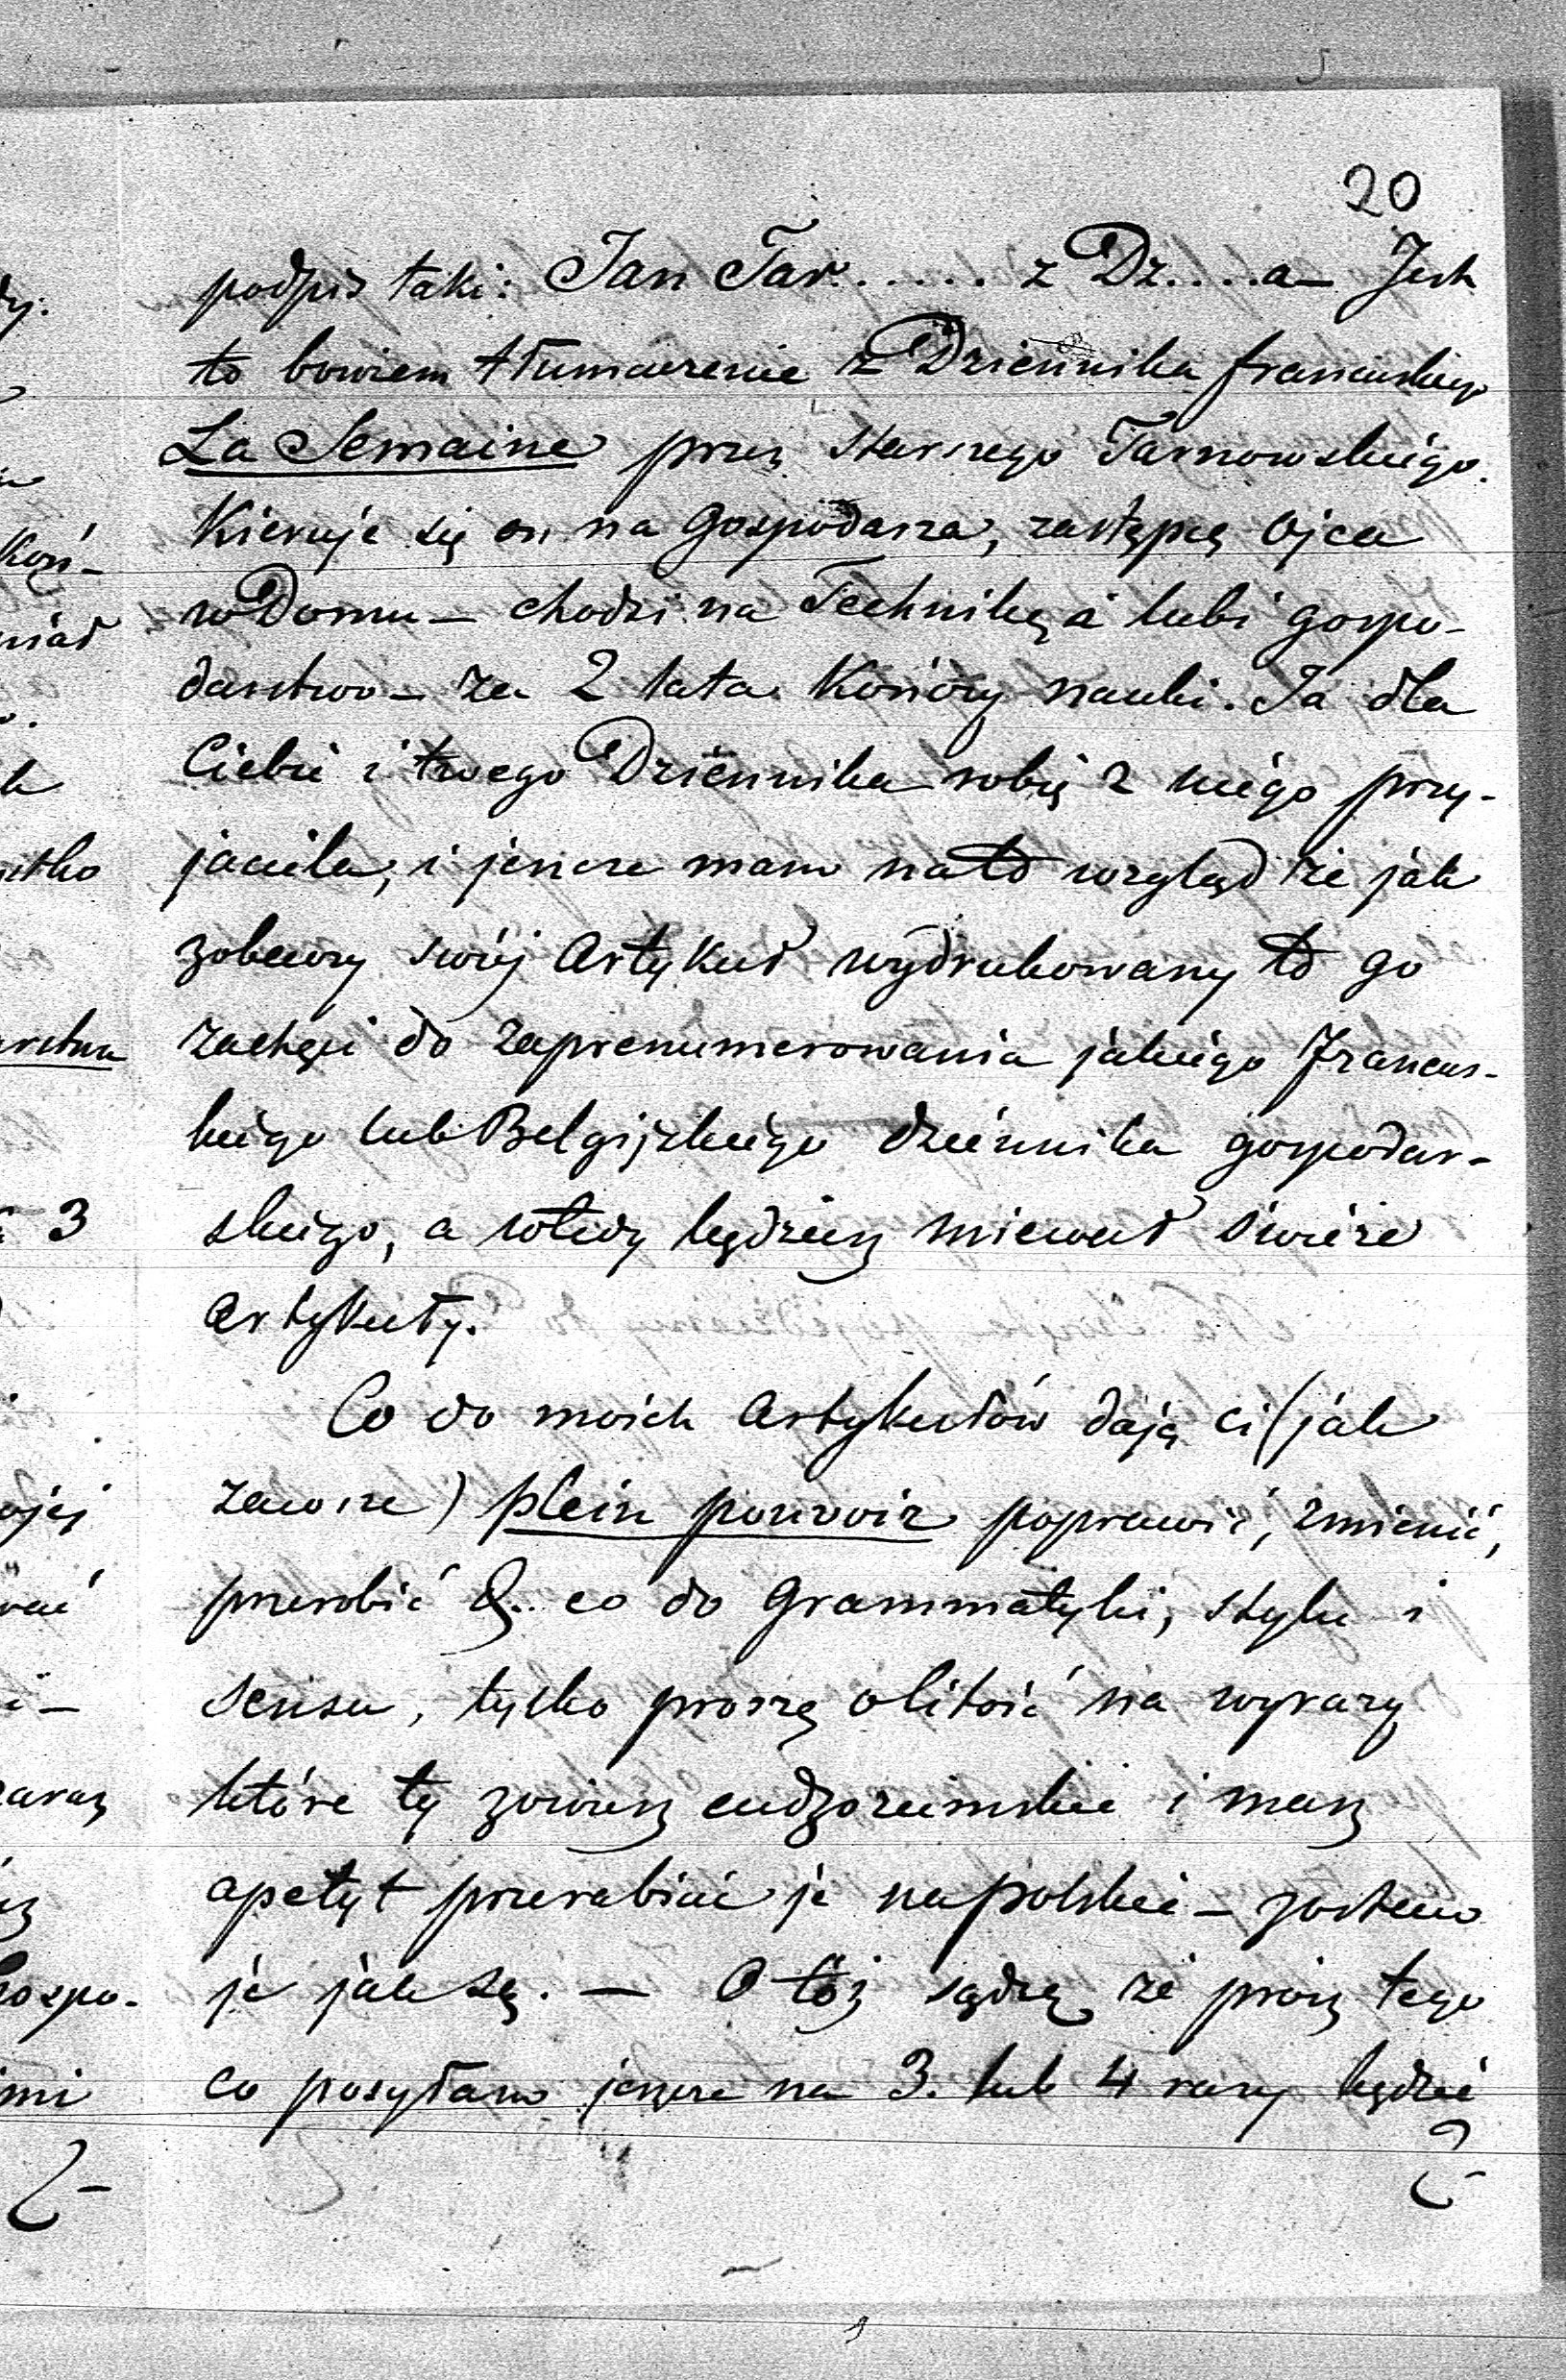 20
podpis taki: Jan Tar...... z Dz....a – Jest
to bowiem tłumaczenie z Dziennika francuskiego
La Semaine przez starszego Tarnowskiego.
Kieruje się on na Gospodarza, zastępcę Ojca
w Domu – chodzi na Technikę a lubi gospo-
darstwo – za 2 lata kończy nauki. Ja dla
Ciebie i twego Dziennika robię z niego przy-
jaciela, i jeszcze mam na to wzgląd że jak
zobaczy swój Artykuł wydrukowany to go
zachęci do zaprenumerowania jakiego Francus-
kiego lub Belgijskiego dziennika gospodar-
skiego, a wtedy będziesz miewał świeże
Artykuły.
Co do moich Artykułów daję ci (jak
zawsze) plein pouvoir poprawić, zmienić,
przerobić &.. co do Grammatyki, stylu i
sensu, tylko proszę o litość na wyrazy
które ty zowiesz cudzoziemskie i masz
apetyt przerabiać je na polskie – zostaw
je jak są. – Otóż sądzę że prócz tego
co posyłam jeszcze na 3. lub 4 razy będzie